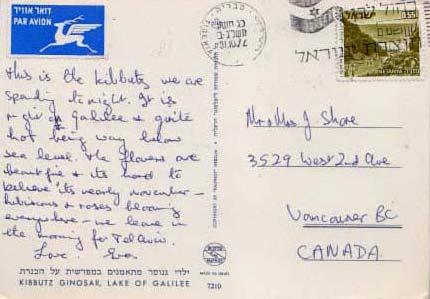 דואר אוויר
PAR AVION
This is the kibbutz we are
spending tonight. It is
right on Galilee & quite
hot being way below
sea level. The flowers are
beautiful & its hard to
believe its nearly november -
hibiscus & roses blooming
everywhere - we leave in
the morning for Tel Aviv.
Love. Eva.
ילדי גנוסר מתאמנים במפרשית על הכנרת
KIBBUTZ GINOSAR, LAKE OF GALILEE
7210
MADE IN ISRAEL
0.55
ישראל
Mr & Mrs J Shore
3529 West 2nd Ave
Vancouver BC
CANADA